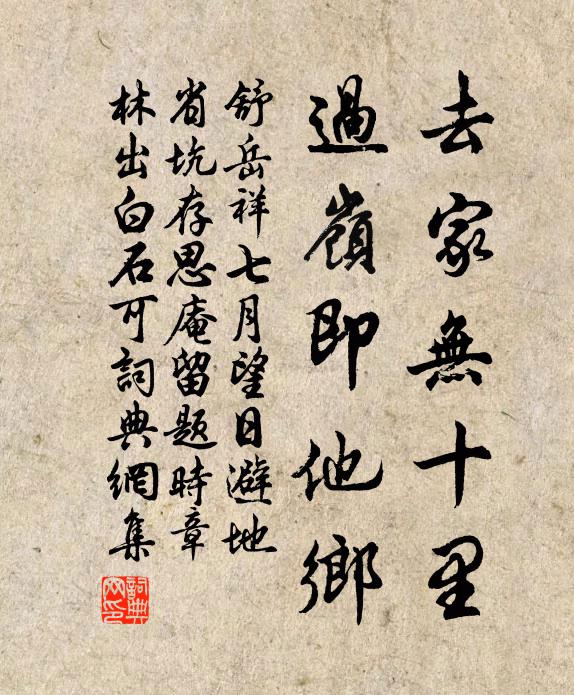 去家無十里
過嶺即他鄉
舒岳祥七月望日避地
省坑存思庵留題時章
林出白石可詞典網集
詞典网印